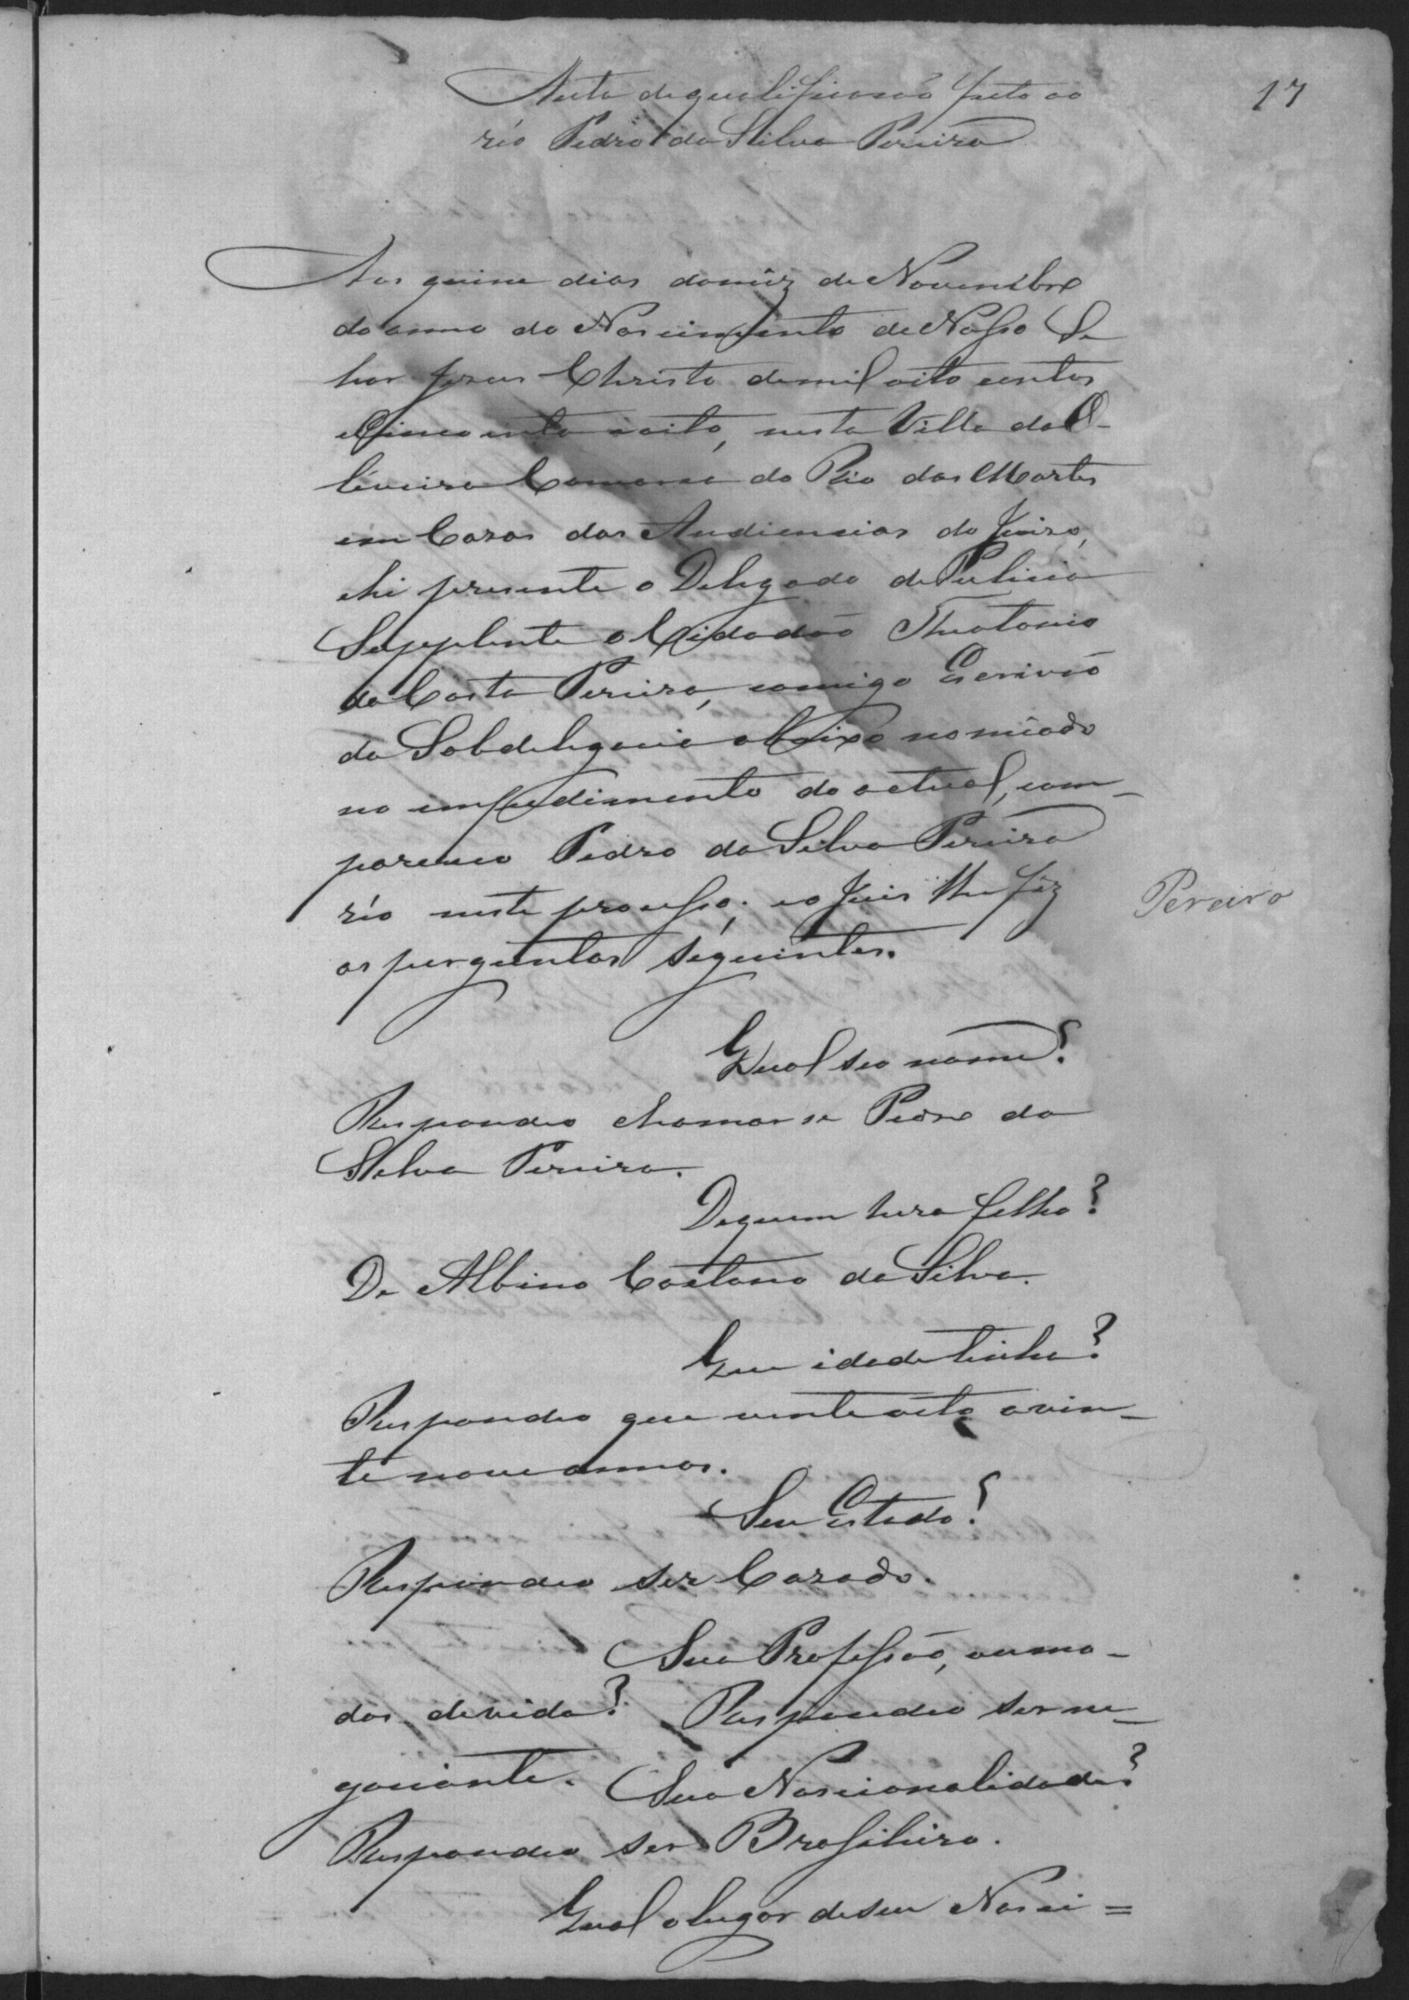 Auto de qualificacaõ feito ao
17
réo Pedro da Silva Pereira
Aos quinse dias do mêz de Novembro
do anno do Nascimento de Nosso Se
nhor Jesus Christo de mil oito centos
e Cincoenta e oito, nesta Villa da O-
liveira Comarca do Rio das Mortes
em Casas das Audiencias do Juiso,
ahi presente o Delegado de Pulicia
Supplente o Cidadaõ Theotonio
da Costa Pereira, comigo Escrivaõ
da Sobdelegacia abaixo nomiado
no impedimento do actual, com-
pareceo Pedro da Silva Pereira
réo neste processo; e o Juis lhe fêz
Pereira
as perguntas seguintes.
Qual seo nome?
Respondeo chamar se Pedro da
Silva Pereira.
De quem hera filho?
De Albino Caetano da Silva.
Que idade tinha?
Respondeo que vinte oito a vin-
te nove annos.
Seu Estado?
Respondeo ser Cazado.
Sua Profissaõ, ou mo-
dos de vida? Respondeo ser ne-
gociante. Sua Nascionalidade?
Respondeo ser Brasileiro.
Qual o lugar de seu Nasci=